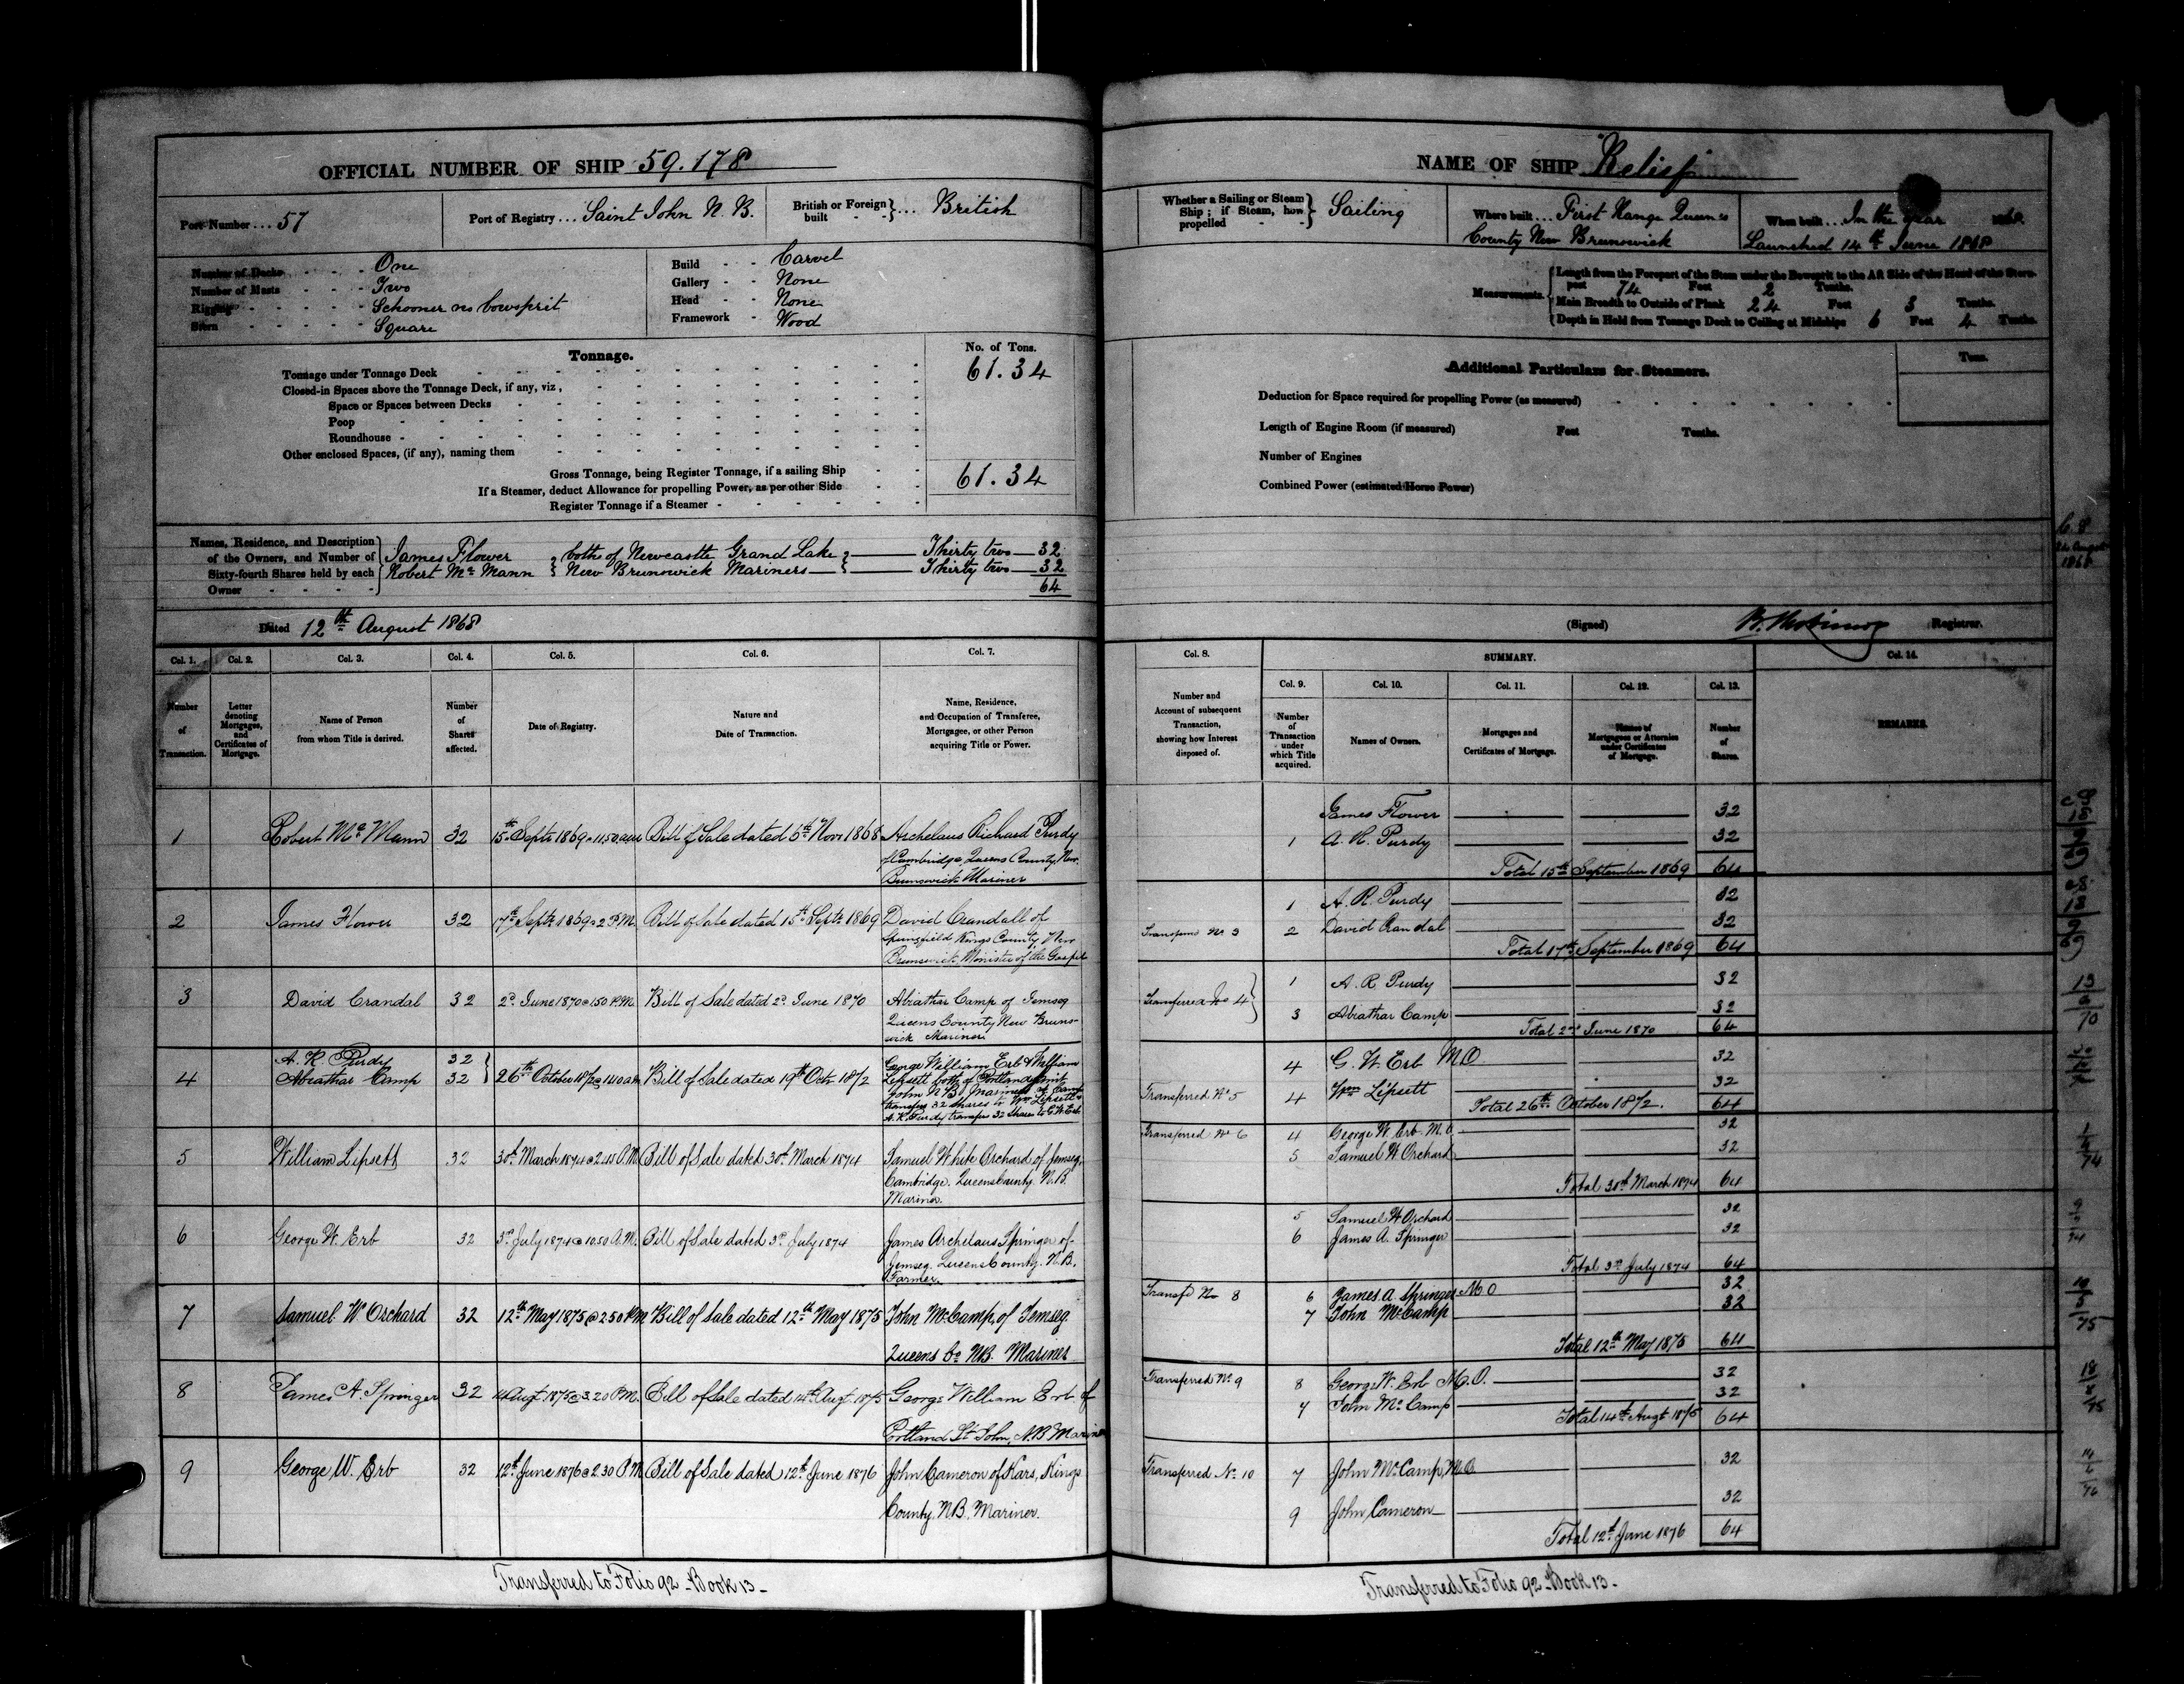 OFFICIAL NUMBER OF SHIP 59.178
Port Number ... 57
Port of Registry ... Saint John N. B.
British or Foreign built } ... British
Number of Decks - - - One
Number of Masts - - - Two
Rigging - - - Schooner no bowsprit
Stern - - - Square
Build - - Carvel
Gallery - - None
Head - - None
Framework - Wood
Tonnage.
No. of Tons.
Tonnage under Tonnage Deck 61.34
Closed-in Spaces above the Tonnage Deck, if any, viz,
Space or Spaces between Decks
Poop
Roundhouse
Other enclosed Spaces, (if any), naming them
Gross Tonnage, being Register Tonnage, if a sailing Ship 61.34
If a Steamer, deduct Allowance for propelling Power, as per other Side
Register Tonnage if a Steamer
Names, Residence, and Description
of the Owners, and Number of
Sixty-fourth Shares held by each
Owner
James Flower } both of Newcastle Grand Lake } Thirty two 32
Robert McMann } New Brunswick Mariners } Thirty two 32
64
Dated 12th August 1868
Col. 1. Col. 2. Col. 3. Col. 4. Col. 5. Col. 6. Col. 7.
Number of Transaction.
Letter denoting Mortgages, and Certificates of Mortgage.
Name of Person from whom Title is derived.
Number of Shares affected.
Date of Registry.
Nature and Date of Transaction.
Name, Residence, and Occupation of Transferee, Mortgagee, or other Person acquiring Title or Power.
1 Robert McMann 32 15th Septr 1869 @ 11.50 am Bill of Sale dated 6th Novr 1868 Archelaus Richard Purdy
of Cambridge, Queens County, New
Brunswick Mariner
2 James Flower 32 17th Septr 1869 @ 2 P.M. Bill of Sale dated 15th Septr 1869 David Crandall of
Springfield Kings County New
Brunswick, Minister of the Gospel
3 David Crandal 32 2d June 1870 @ 1.50 P.M. Bill of Sale dated 2d June 1870 Abiathar Camp of Jemseg
Queens County New Bruns-
wick Mariner
4 A. R. Purdy 32
Abiathar Camp 32 } 26th October 1872 @ 11.40 am Bill of Sale dated 19th Octr 1872
George William Erb & William
Lipsett both of Portland Saint
John N B. Mariners A. Camp
transfers 32 shares to Wm Lipsett &
A. R. Purdy transfers 32 shares to G. W. Erb
5 William Lipsett 32 30th March 1874 @ 2.45 P.M. Bill of Sale dated 30th March 1874 Samuel White Orchard of Jemseg,
Cambridge. Queens County. N.B.
Mariner.
6 George W. Erb 32 3rd July 1874 @ 10.50 A.M. Bill of Sale dated 3rd July 1874 James Archelaus Springer of
Jemseg. Queens County. N.B.
Farmer.
7 Samuel W Orchard 32 12th May 1875 @ 2.50 PM Bill of Sale dated 12th May 1875 John McCamp, of Jemseg.
Queens Co NB. Mariner
8 James A. Springer 32 14 Augt 1875 @ 3.20 P.M. Bill of Sale dated 14th Augt. 1875 George William Erb of
Portland St John, N.B Mariner
9 George W. Erb 32 12th June 1876 @ 2.30 P.M Bill of Sale dated 12th June 1876 John Cameron of Kars, Kings
County, N.B. Mariner.
Transferred to Folio 92 - Book 13 -
NAME OF SHIP Relief
Whether a Sailing or Steam Ship; if Steam, how propelled } Sailing
Where built ... First Range Queens
County New Brunswick
When built ... In the year
Launched 14th June 1868
Measurements
Length from the Forepart of the Stem under the Bowsprit to the Aft Side of the Head of the Stern-
post 74 Feet 2 Tenths.
Main Breadth to Outside of Plank 24 Feet 3 Tenths.
Depth in Hold from Tonnage Deck to Ceiling at Midships 6 Feet 4 Tenths.
Additional Particulars for Steamers.
Tons.
Deduction for Space required for propelling Power (as measured)
Length of Engine Room (if measured) Feet Tenths.
Number of Engines
Combined Power (estimated Horse Power)
(Signed) Registrar.
Col. 8. SUMMARY. Col. 14.
Col. 9. Col. 10. Col. 11. Col. 12. Col. 13.
Number and Account of subsequent Transaction, showing how Interest disposed of.
Number of Transaction under which Title acquired.
Names of Owners.
Mortgages and Certificates of Mortgage.
Names of Mortgagees or Attornies under Certificates of Mortgage.
Number of Shares.
REMARKS.
James Flower 32
1 A. R. Purdy 32
Total 15th September 1869 64
1 A. R. Purdy 32
Transferred No 3 2 David Crandal 32
Total 17th September 1869 64
1 A. R Purdy 32
Transferred No 4 } 3 Abiathar Camp 32
Total 2nd June 1870 64
4 G. W. Erb M.O 32
Transferred No 5 4 Wm Lipsett 32
Total 26th October 1872. 64
Transferred No 6 4 George W. Erb. M.O. 32
5 Samuel W Orchard 32
Total 30th March 1874 64
5 Samuel W Orchard 32
6 James A. Springer 32
Total 3rd July 1874 64
Transfd No 8 6 James A Springer M.O 32
7 John McCamp 32
Total 12th May 1875 64
Transferred No 9 8 George W. Erb M.O. 32
7 John McCamp 32
Total 14th Augt 1875 64
Transferred No 10 7 John McCamp, M.O. 32
9 John Cameron 32
Total 12th June 1876 64
Transferred to Folio 92 - Book 13 -